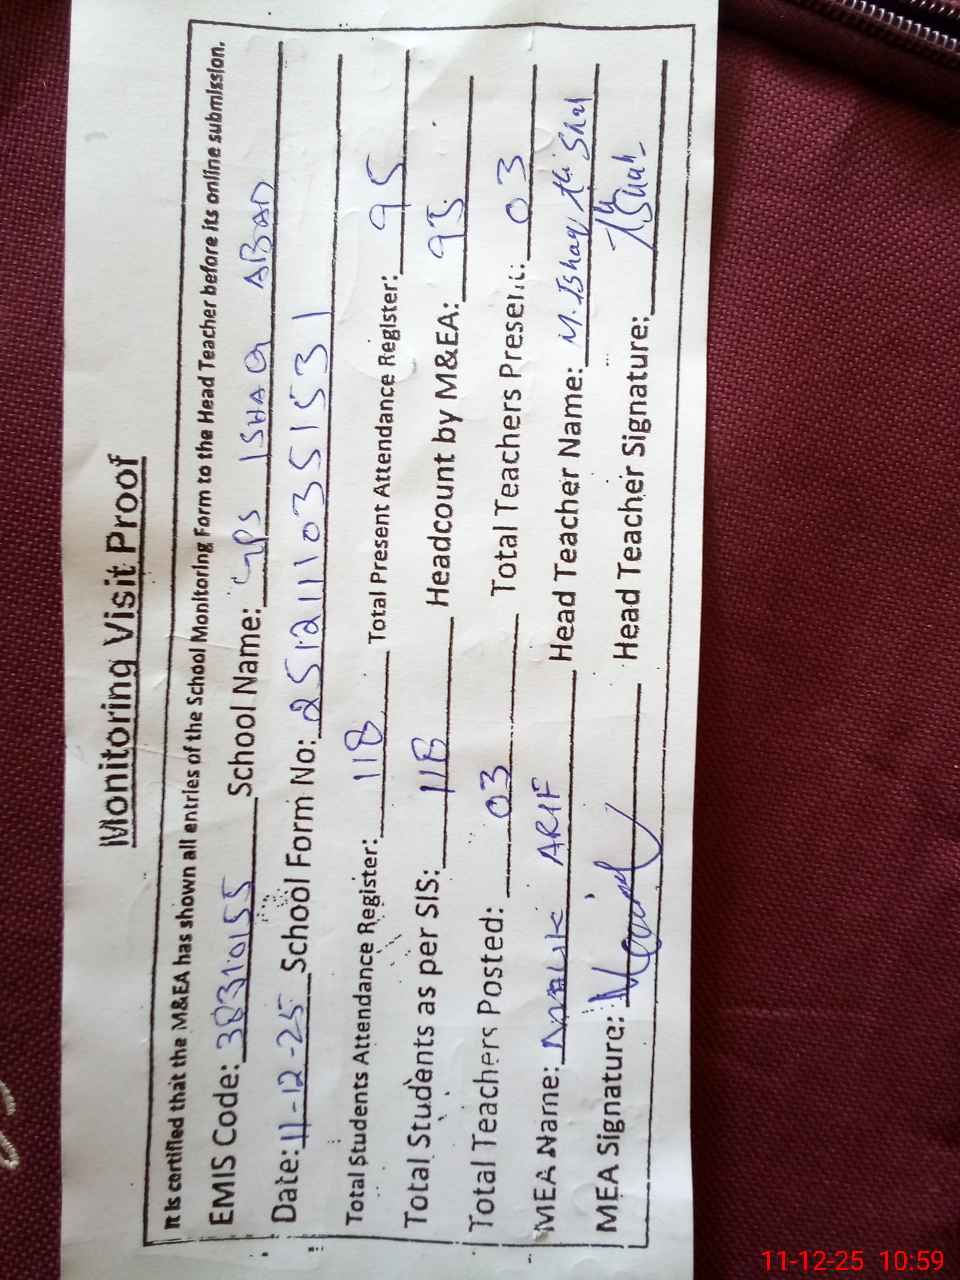 Monitoring Visit Proof
It is certified that the M&EA has shown all entries of the School Monitoring Form to the Head Teacher before its online submission.
EMIS Code: 38310155 School Name: GPS ISHAQ ABAD
Date: 11-12-25 School Form No: 251211103515531
Total Students Attendance Register: 118 Total Present Attendance Register: 95
Total Students as per SIS: 118 Headcount by M&EA: 95
Total Teachers Posted: 03 Total Teachers Present: 03
MEA Name: MALIK ARIF Head Teacher Name: M. Ishaq Shah
MEA Signature: Head Teacher Signature: Shah
11-12-25 10:59